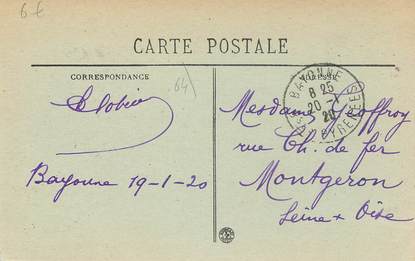 6 €
CARTE POSTALE
CORRESPONDANCE
ADRESSE
64
BAYONNE
8 25
20 - 1
20
PYRENEES
Mesdames Geoffroy
rue Ch. de fer
Montgeron
Seine & Oise
Bayonne 19-1-20